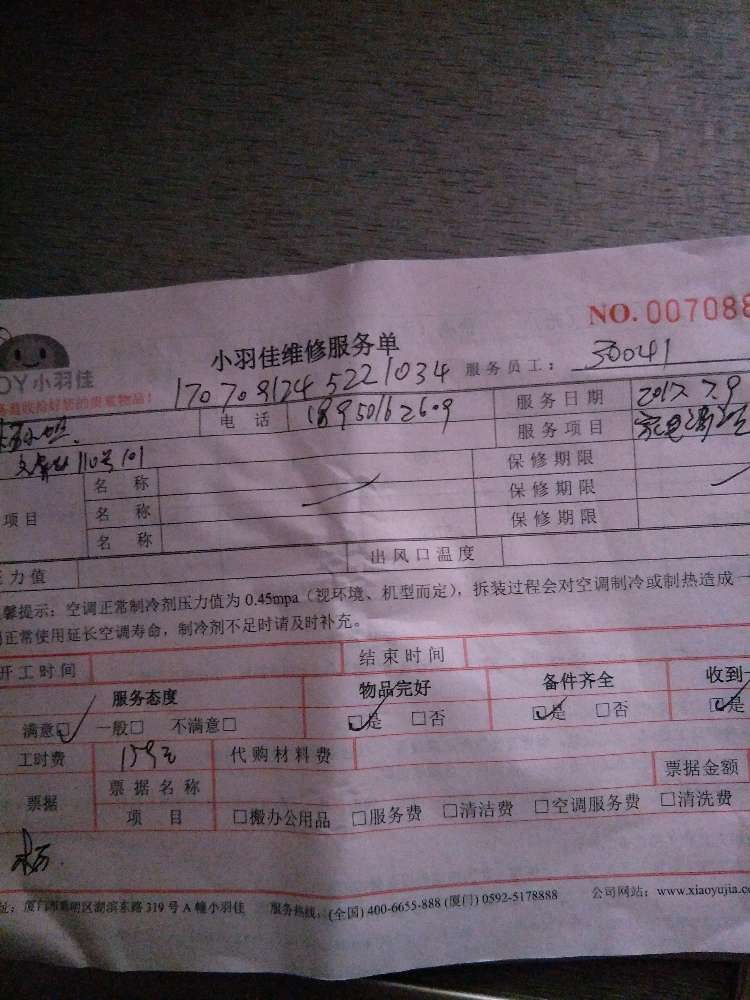 NO. 007088
小羽佳维修服务单
OY小羽佳
1707091245221034
服务员工: 30041
收拾好您的贵重物品!
电 话 18950162609 服务日期 2017.7.9
110号101 服务项目 家电清洗
保修期限
项目 名 称 保修期限
名 称 保修期限
名 称
力值 出风口温度
馨提示:空调正常制冷剂压力值为 0.45mpa(视环境、机型而定),拆装过程会对空调制冷或制热造成一
正常使用延长空调寿命,制冷剂不足时请及时补充。
开工时间 结束时间
服务态度 物品完好 备件齐全 收到
满意☑ 一般□ 不满意□ ☑是 □否 ☑是 □否 ☑是
工时费 代购材料费
票据 票据名称 票据金额
项 目 □搬办公用品 □服务费 □清洁费 □空调服务费 □清洗费
址:厦门市思明区湖滨东路 319 号 A 幢小羽佳 服务热线:(全国) 400-6655-888 (厦门) 0592-5178888 公司网站:www.xiaoyujia.co